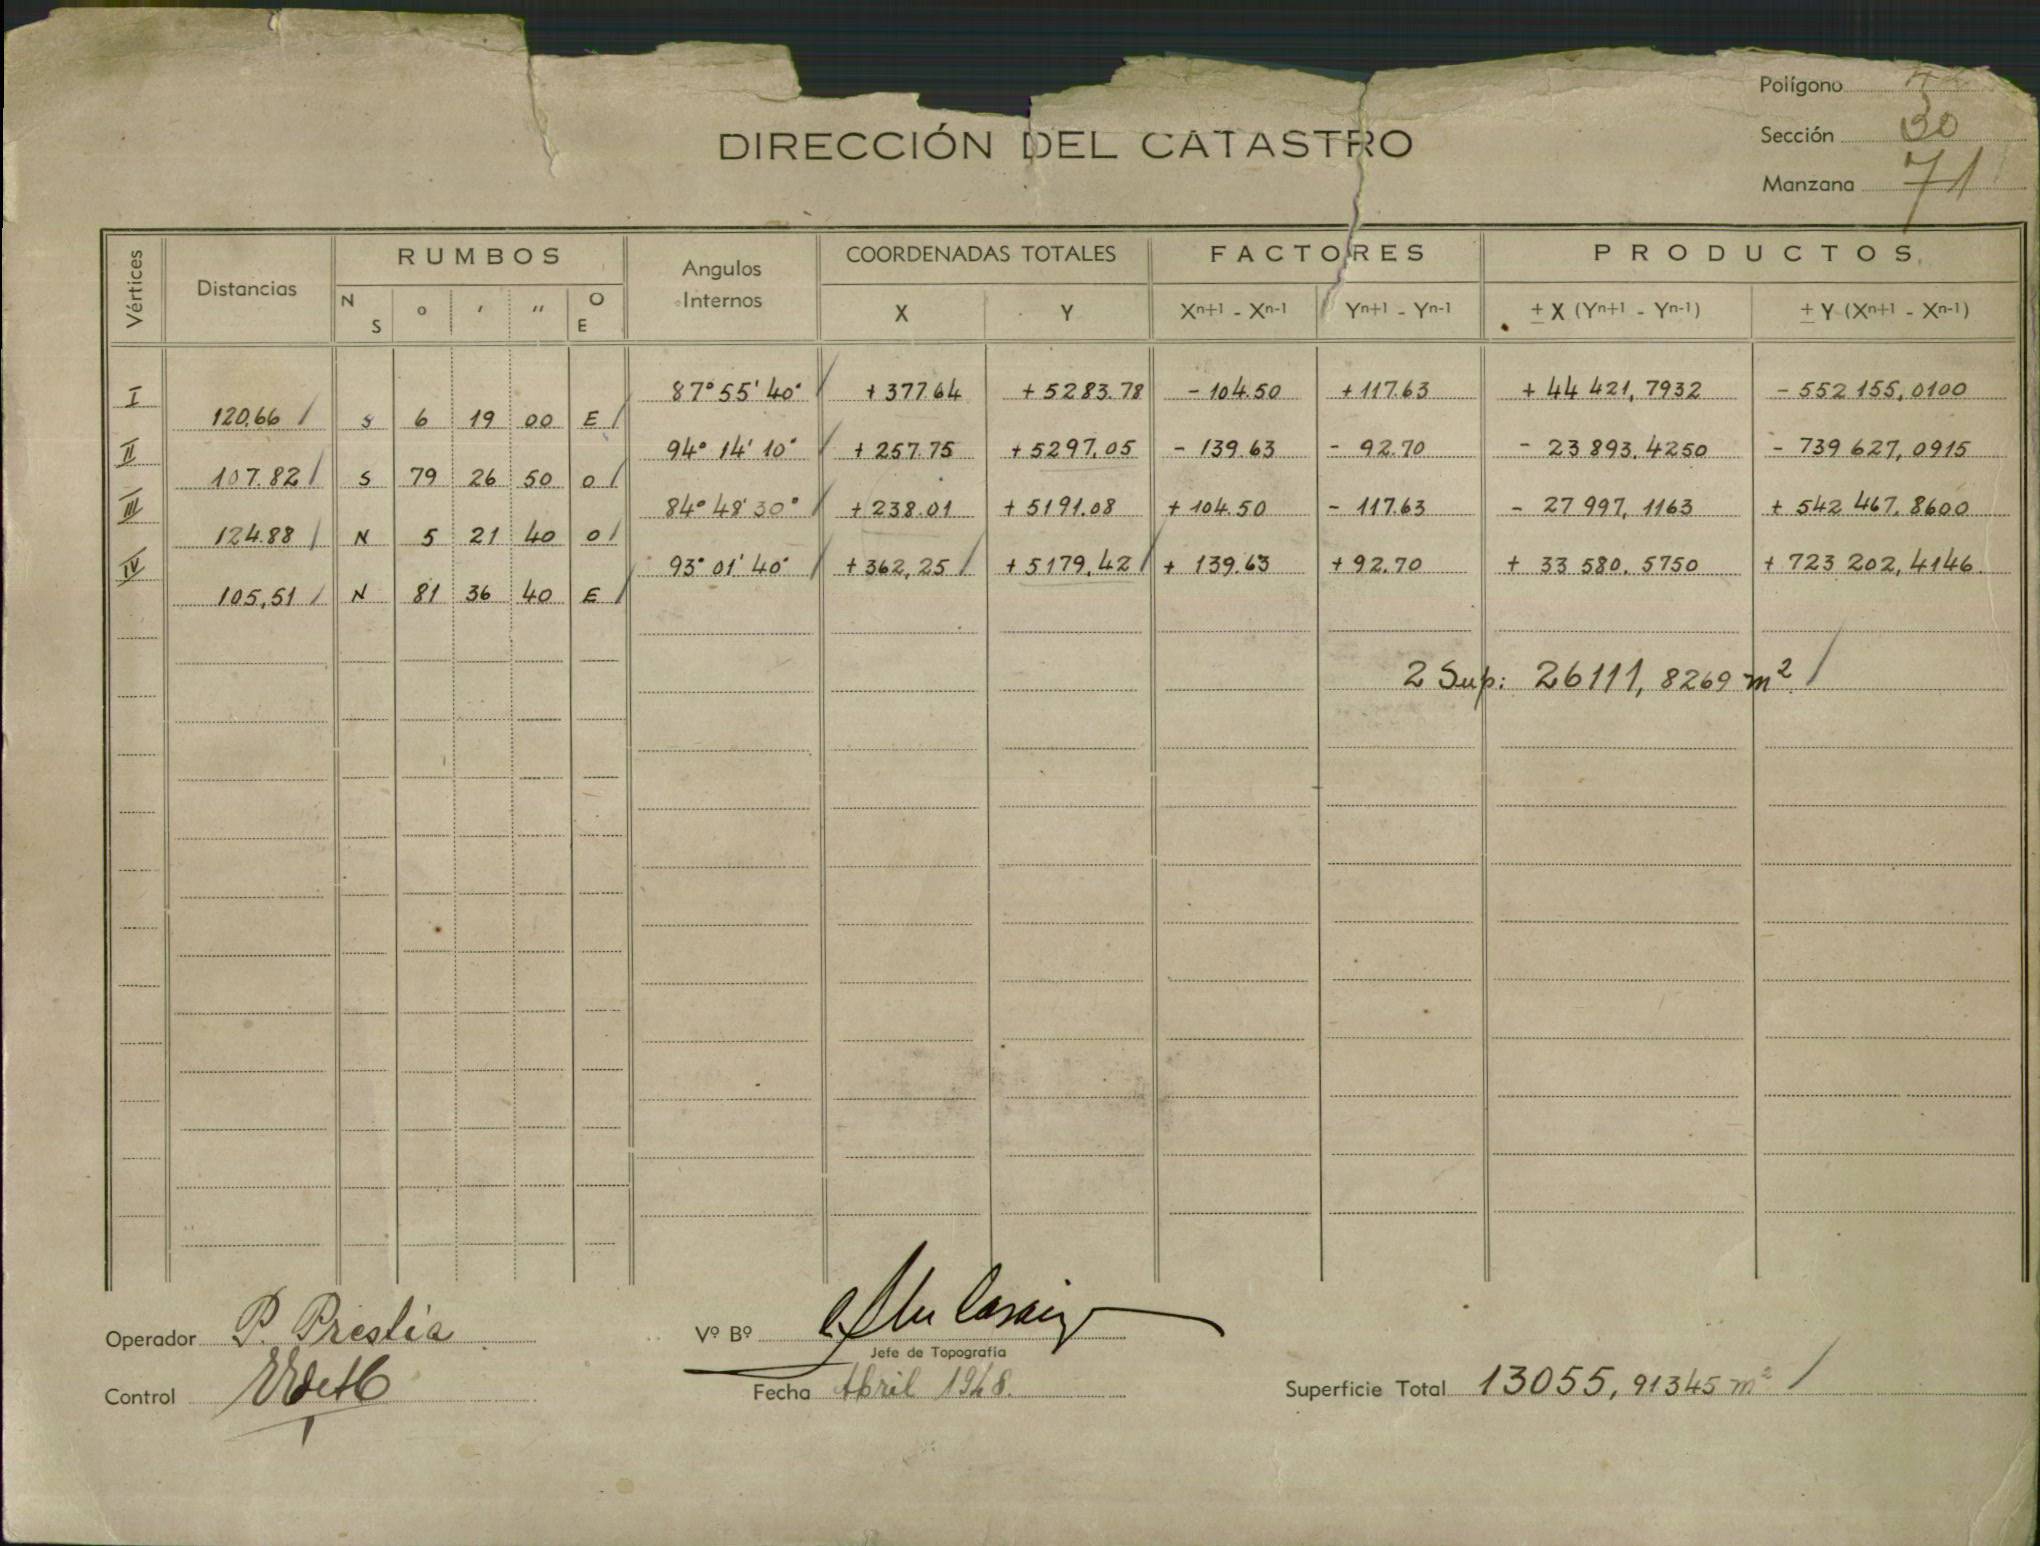 Polígono
Sección 30
Manzana 71
DIRECCIÓN DEL CATASTRO
Vértices Distancias RUMBOS Angulos Internos COORDENADAS TOTALES FACTORES PRODUCTOS
N S o ' " O E X Y Xn+1 - Xn-1 Yn+1 - Yn-1 ± X (Yn+1 - Yn-1) ± Y (Xn+1 - Xn-1)
I 87° 55' 40" +377.64 +5283.78 - 104.50 +117.63 + 44 421, 7932 - 552 155, 0100
120,66 S 6 19 00 E
II 94° 14' 10" +257.75 +5297,05 - 139.63 - 92.70 - 23 893. 4250 - 739 627, 0915
107.82 S 79 26 50 O
III 84° 48' 30" +238.01 +5191.08 + 104.50 - 117.63 - 27 997, 1163 + 542 467. 8600
124.88 N 5 21 40 O
IV 93° 01' 40" +362,25 +5179,42 + 139.63 +92.70 + 33 580. 5750 + 723 202, 4146
105,51 N 81 36 40 E
2 Sup: 26111, 8269 m²
Operador P. Preslia
Vº Bº
Jefe de Topografía
Control
Fecha Abril 1948.
Superficie Total 13055, 91345 m²